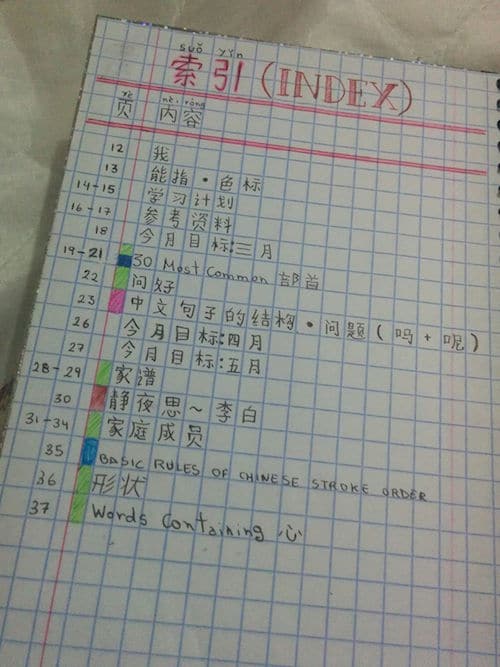 suǒ yǐn
索引 (INDEX)
yè nèi róng
页 内容
12 我
13 能指·色标
14-15 学习计划
16-17 参考资料
18 今月目标:三月
19-21 30 Most Common 部首
22 问好
23 中文句子的结构·问题(吗+呢)
26 今月目标:四月
27 今月目标:五月
28-29 家谱
30 静夜思~李白
31-34 家庭成员
35 BASIC RULES OF CHINESE STROKE ORDER
36 形状
37 Words Containing 心